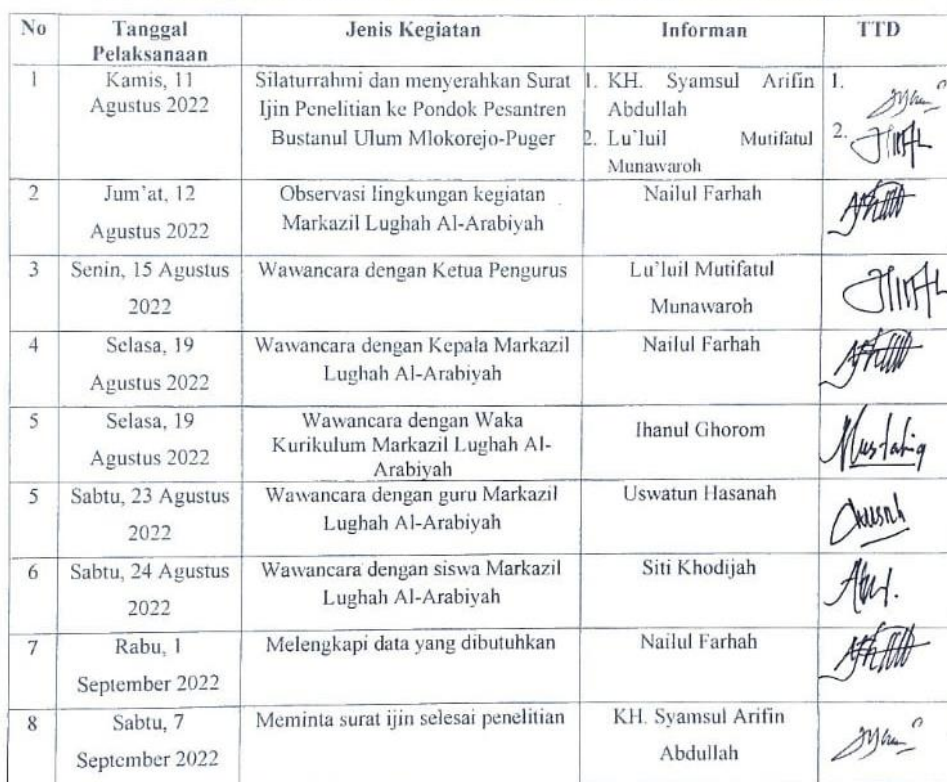 No Tanggal Pelaksanaan Jenis Kegiatan Informan TTD
1 Kamis, 11 Agustus 2022 Silaturrahmi dan menyerahkan Surat Ijin Penelitian ke Pondok Pesantren Bustanul Ulum Mlokorejo-Puger 1. KH. Syamsul Arifin Abdullah 2. Lu'luil Mutifatul Munawaroh 1. 2.
2 Jum'at, 12 Agustus 2022 Observasi lingkungan kegiatan Markazil Lughah Al-Arabiyah Nailul Farhah
3 Senin, 15 Agustus 2022 Wawancara dengan Ketua Pengurus Lu'luil Mutifatul Munawaroh
4 Selasa, 19 Agustus 2022 Wawancara dengan Kepala Markazil Lughah Al-Arabiyah Nailul Farhah
5 Selasa, 19 Agustus 2022 Wawancara dengan Waka Kurikulum Markazil Lughah Al-Arabiyah Ihanul Ghorom
5 Sabtu, 23 Agustus 2022 Wawancara dengan guru Markazil Lughah Al-Arabiyah Uswatun Hasanah
6 Sabtu, 24 Agustus 2022 Wawancara dengan siswa Markazil Lughah Al-Arabiyah Siti Khodijah
7 Rabu, 1 September 2022 Melengkapi data yang dibutuhkan Nailul Farhah
8 Sabtu, 7 September 2022 Meminta surat ijin selesai penelitian KH. Syamsul Arifin Abdullah